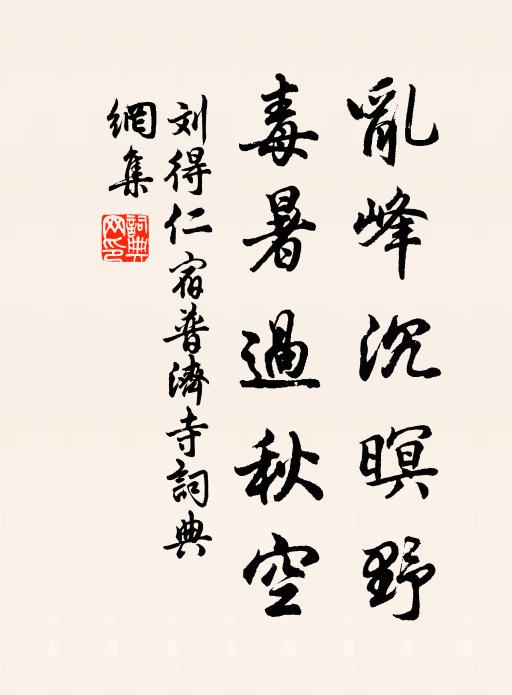 亂峰沉暝野
毒暑過秋空
刘得仁宿普濟寺詞典
網集
詞典网印